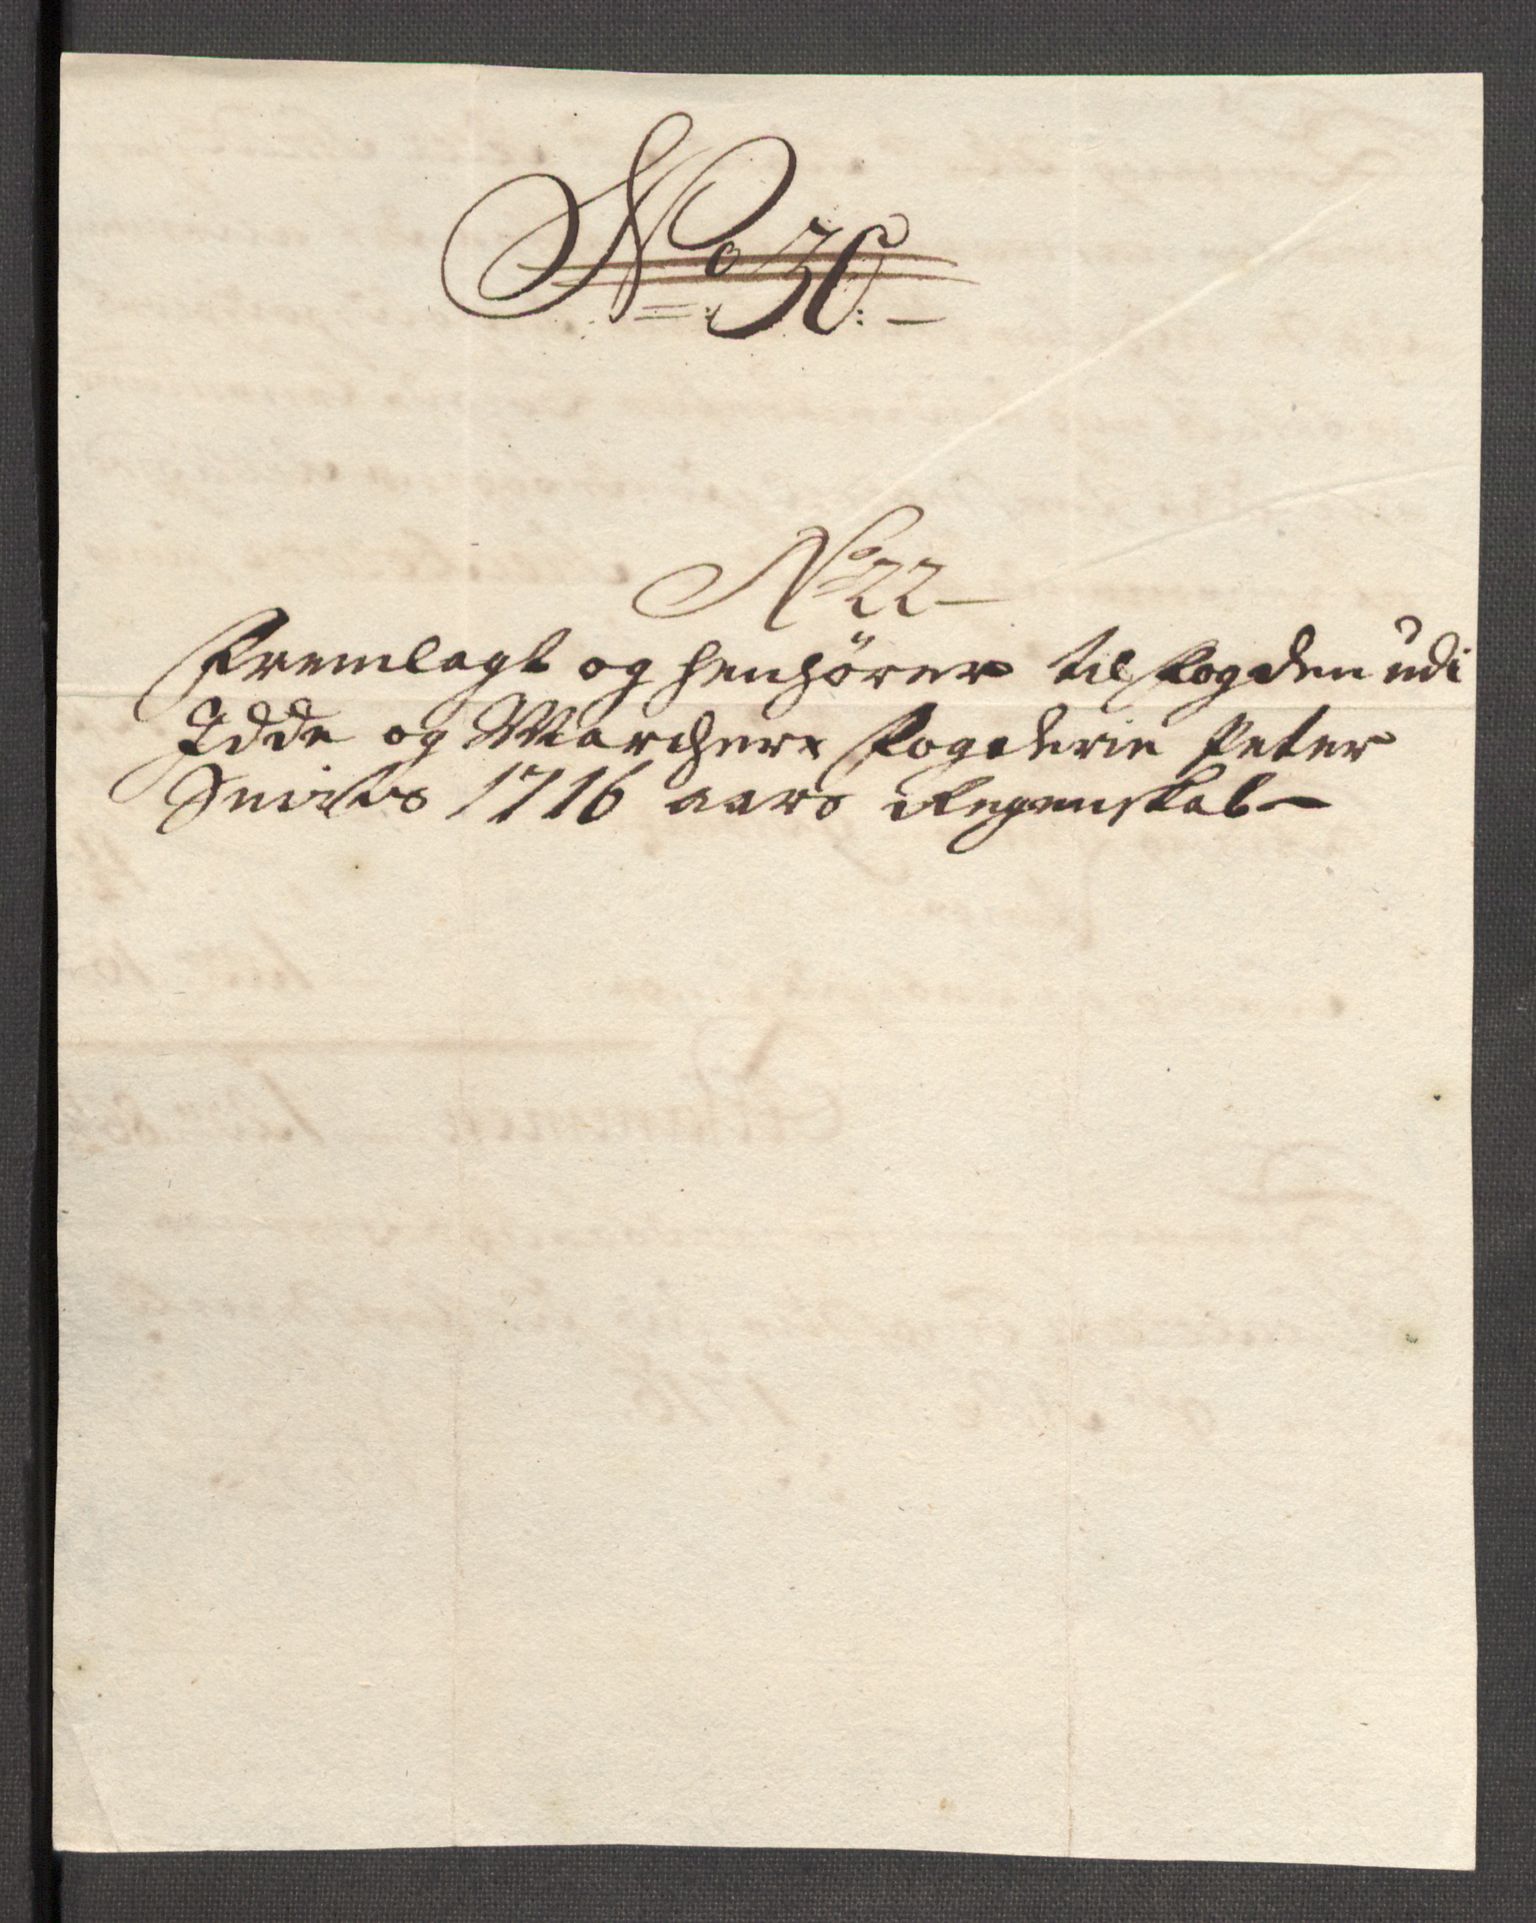 No 30.
No 22
Fremlagt og henhörer til fogden udi
Idde og Marcher Fogderie Peter
1716 aars Regenskab